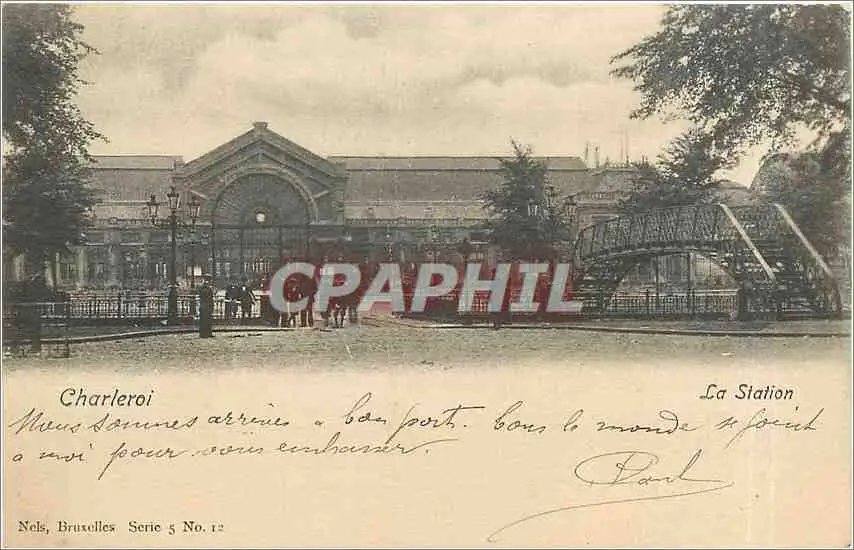 CPAPHIL
Charleroi
La Station
Nous sommes arrivés a bon port. Tous le monde se joint
a moi pour vous embrasser.
Paul
Nels, Bruxelles Serie 5 No. 12